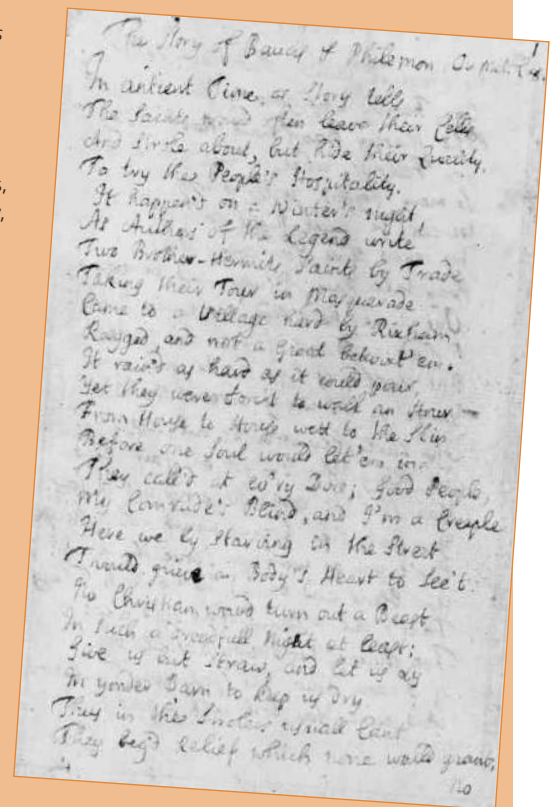 The Story of Baucis & Philemon. Ov. Met. L. 8.
In antient Time, as Story tells
The Saints would often leave their Cells
And strole about, but hide their Quality,
To try the People's Hospitality.
It happen'd on a Winter's night,
As Authors of the Legend write
Two Brother-Hermits, Saints by Trade
Taking their Tour in Masquerade
Came to a Village hard by Rixham
Ragged, and not a Groat betwixt'em.
It rain'd as hard as it could pour,
Yet they were forc't to walk an Hour
From House to House wett to the Skin
Before one Soul would let'em in.
They call'd at ev'ry Dore; Good People,
My Comrade's Blind, and I'm a Creeple
Here we ly starving in the Street
T'would grieve a Body's Heart to see't:
No Christian would turn out a Beast
In such a dreadfull Night at least;
Give us but Straw, and let us ly
In yonder Barn to keep us dry
Thus in the Strolers usuall Cant
They beg'd relief which none would grant;
No